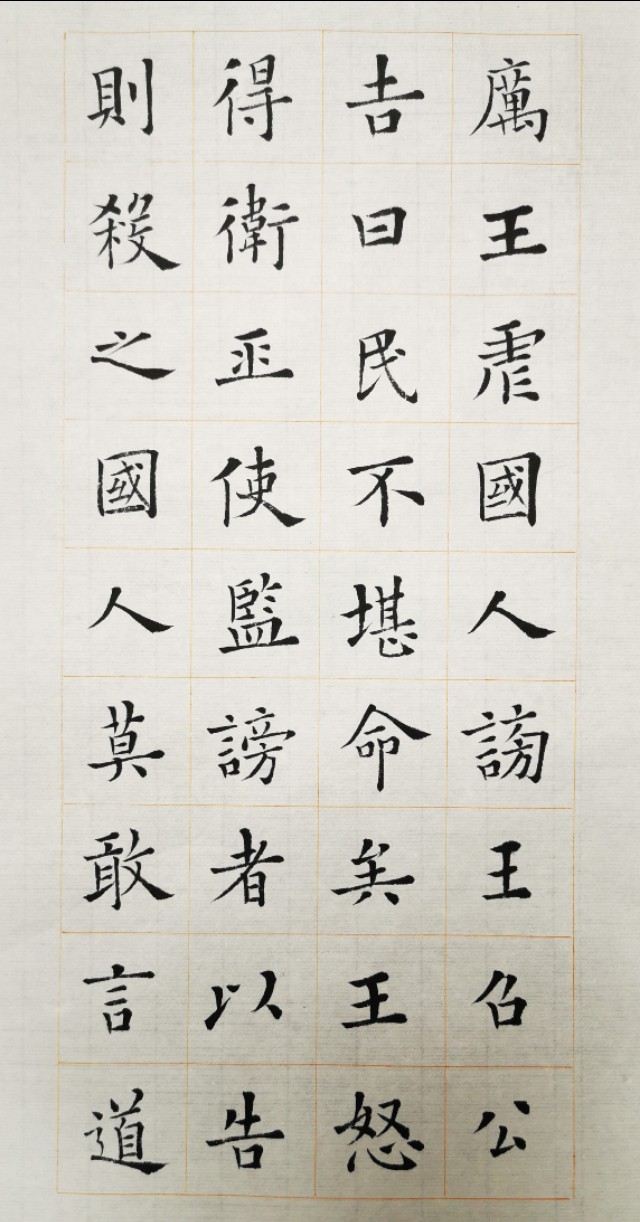 厲王虐國人謗王召公
告曰民不堪命矣王怒
得衛巫使監謗者以告
則殺之國人莫敢言道